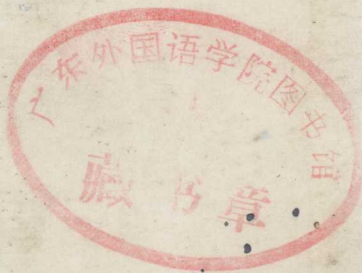 广东外国语学院图书馆
藏书章